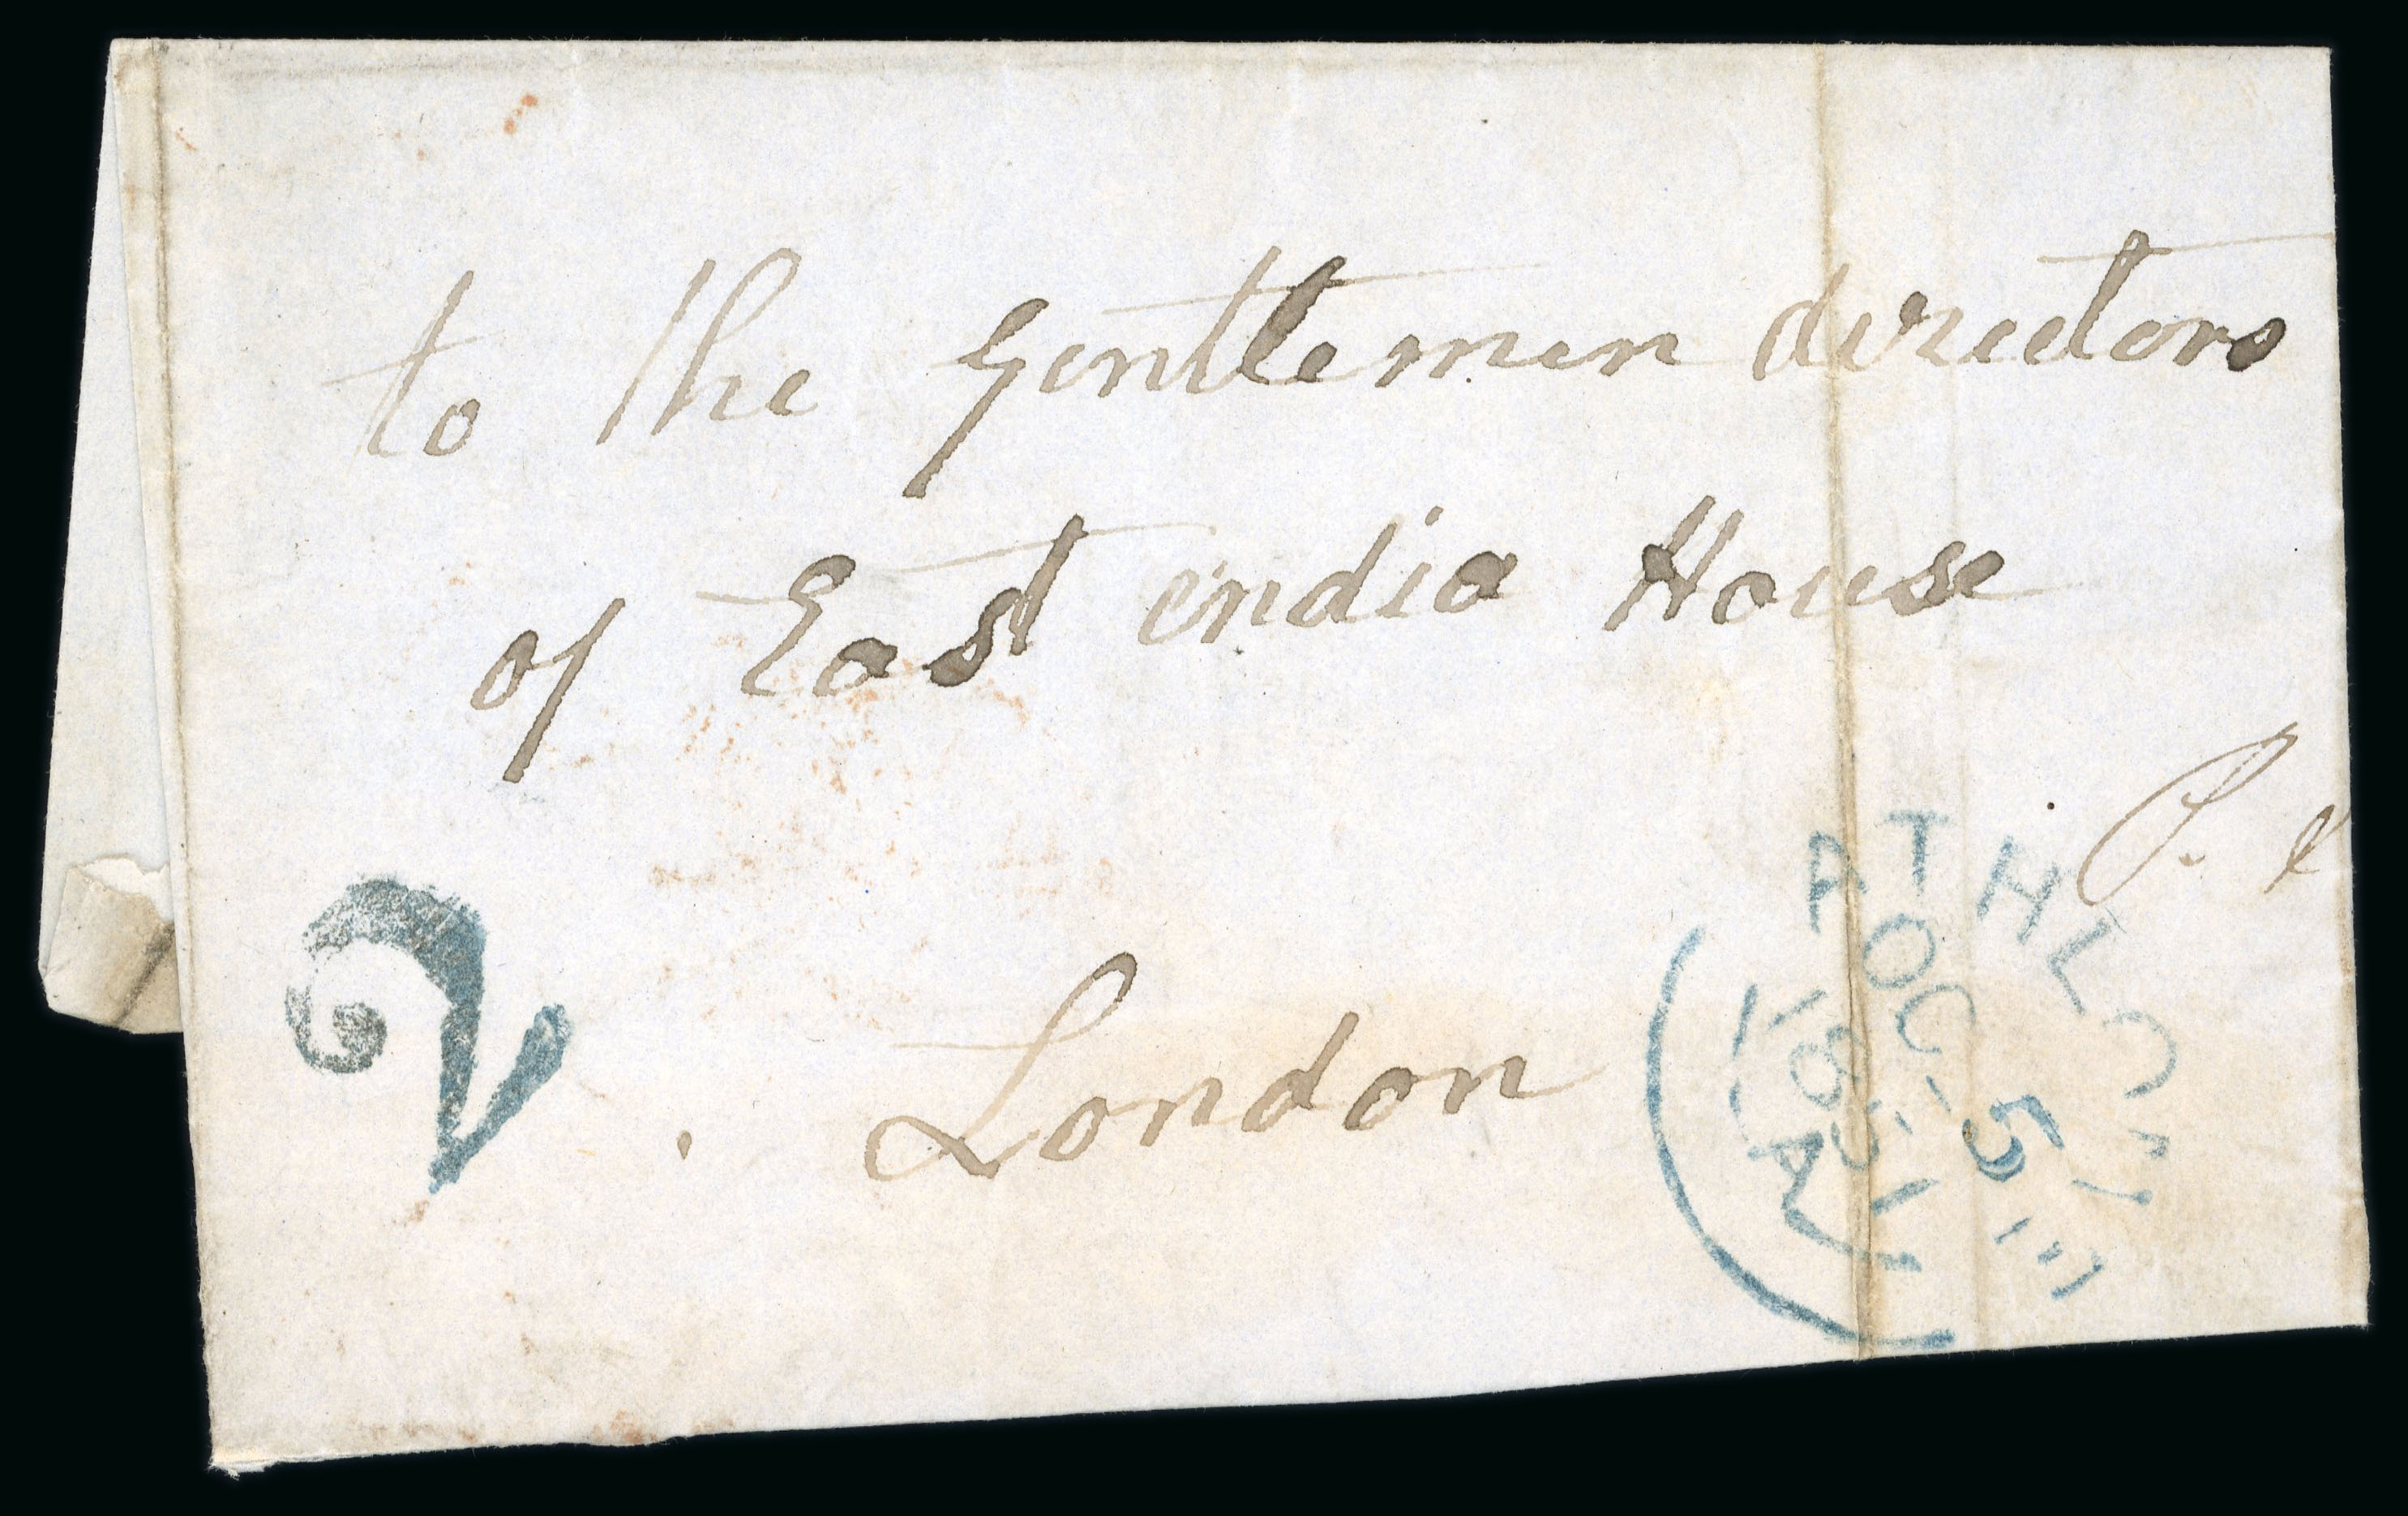 to the Gentlemen directors
of East india House
P.
2
London
ATHLONE
OC 5
1851
A